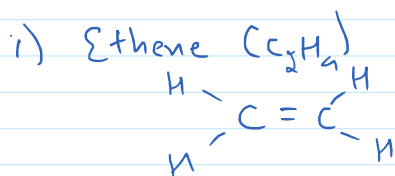 i) Ethene (C₂H₄)
H H
C = C
H H